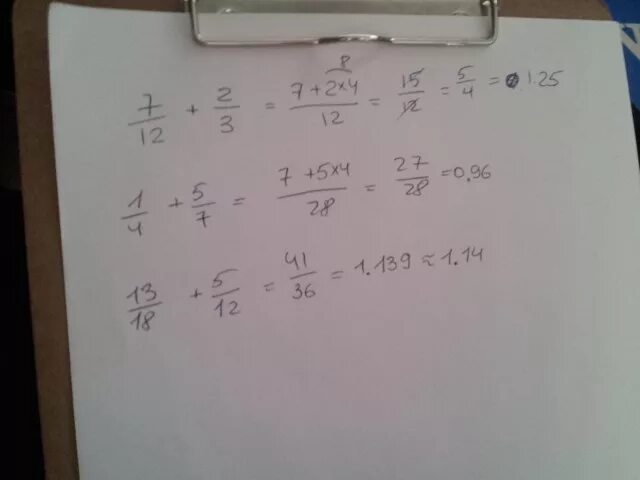 7/12 + 2/3 = (7+2×4)/12 = 15/12 = 5/4 = 1.25
8
1/4 + 5/7 = (7+5×4)/28 = 27/28 = 0,96
13/18 + 5/12 = 41/36 = 1.139 ≈ 1.14